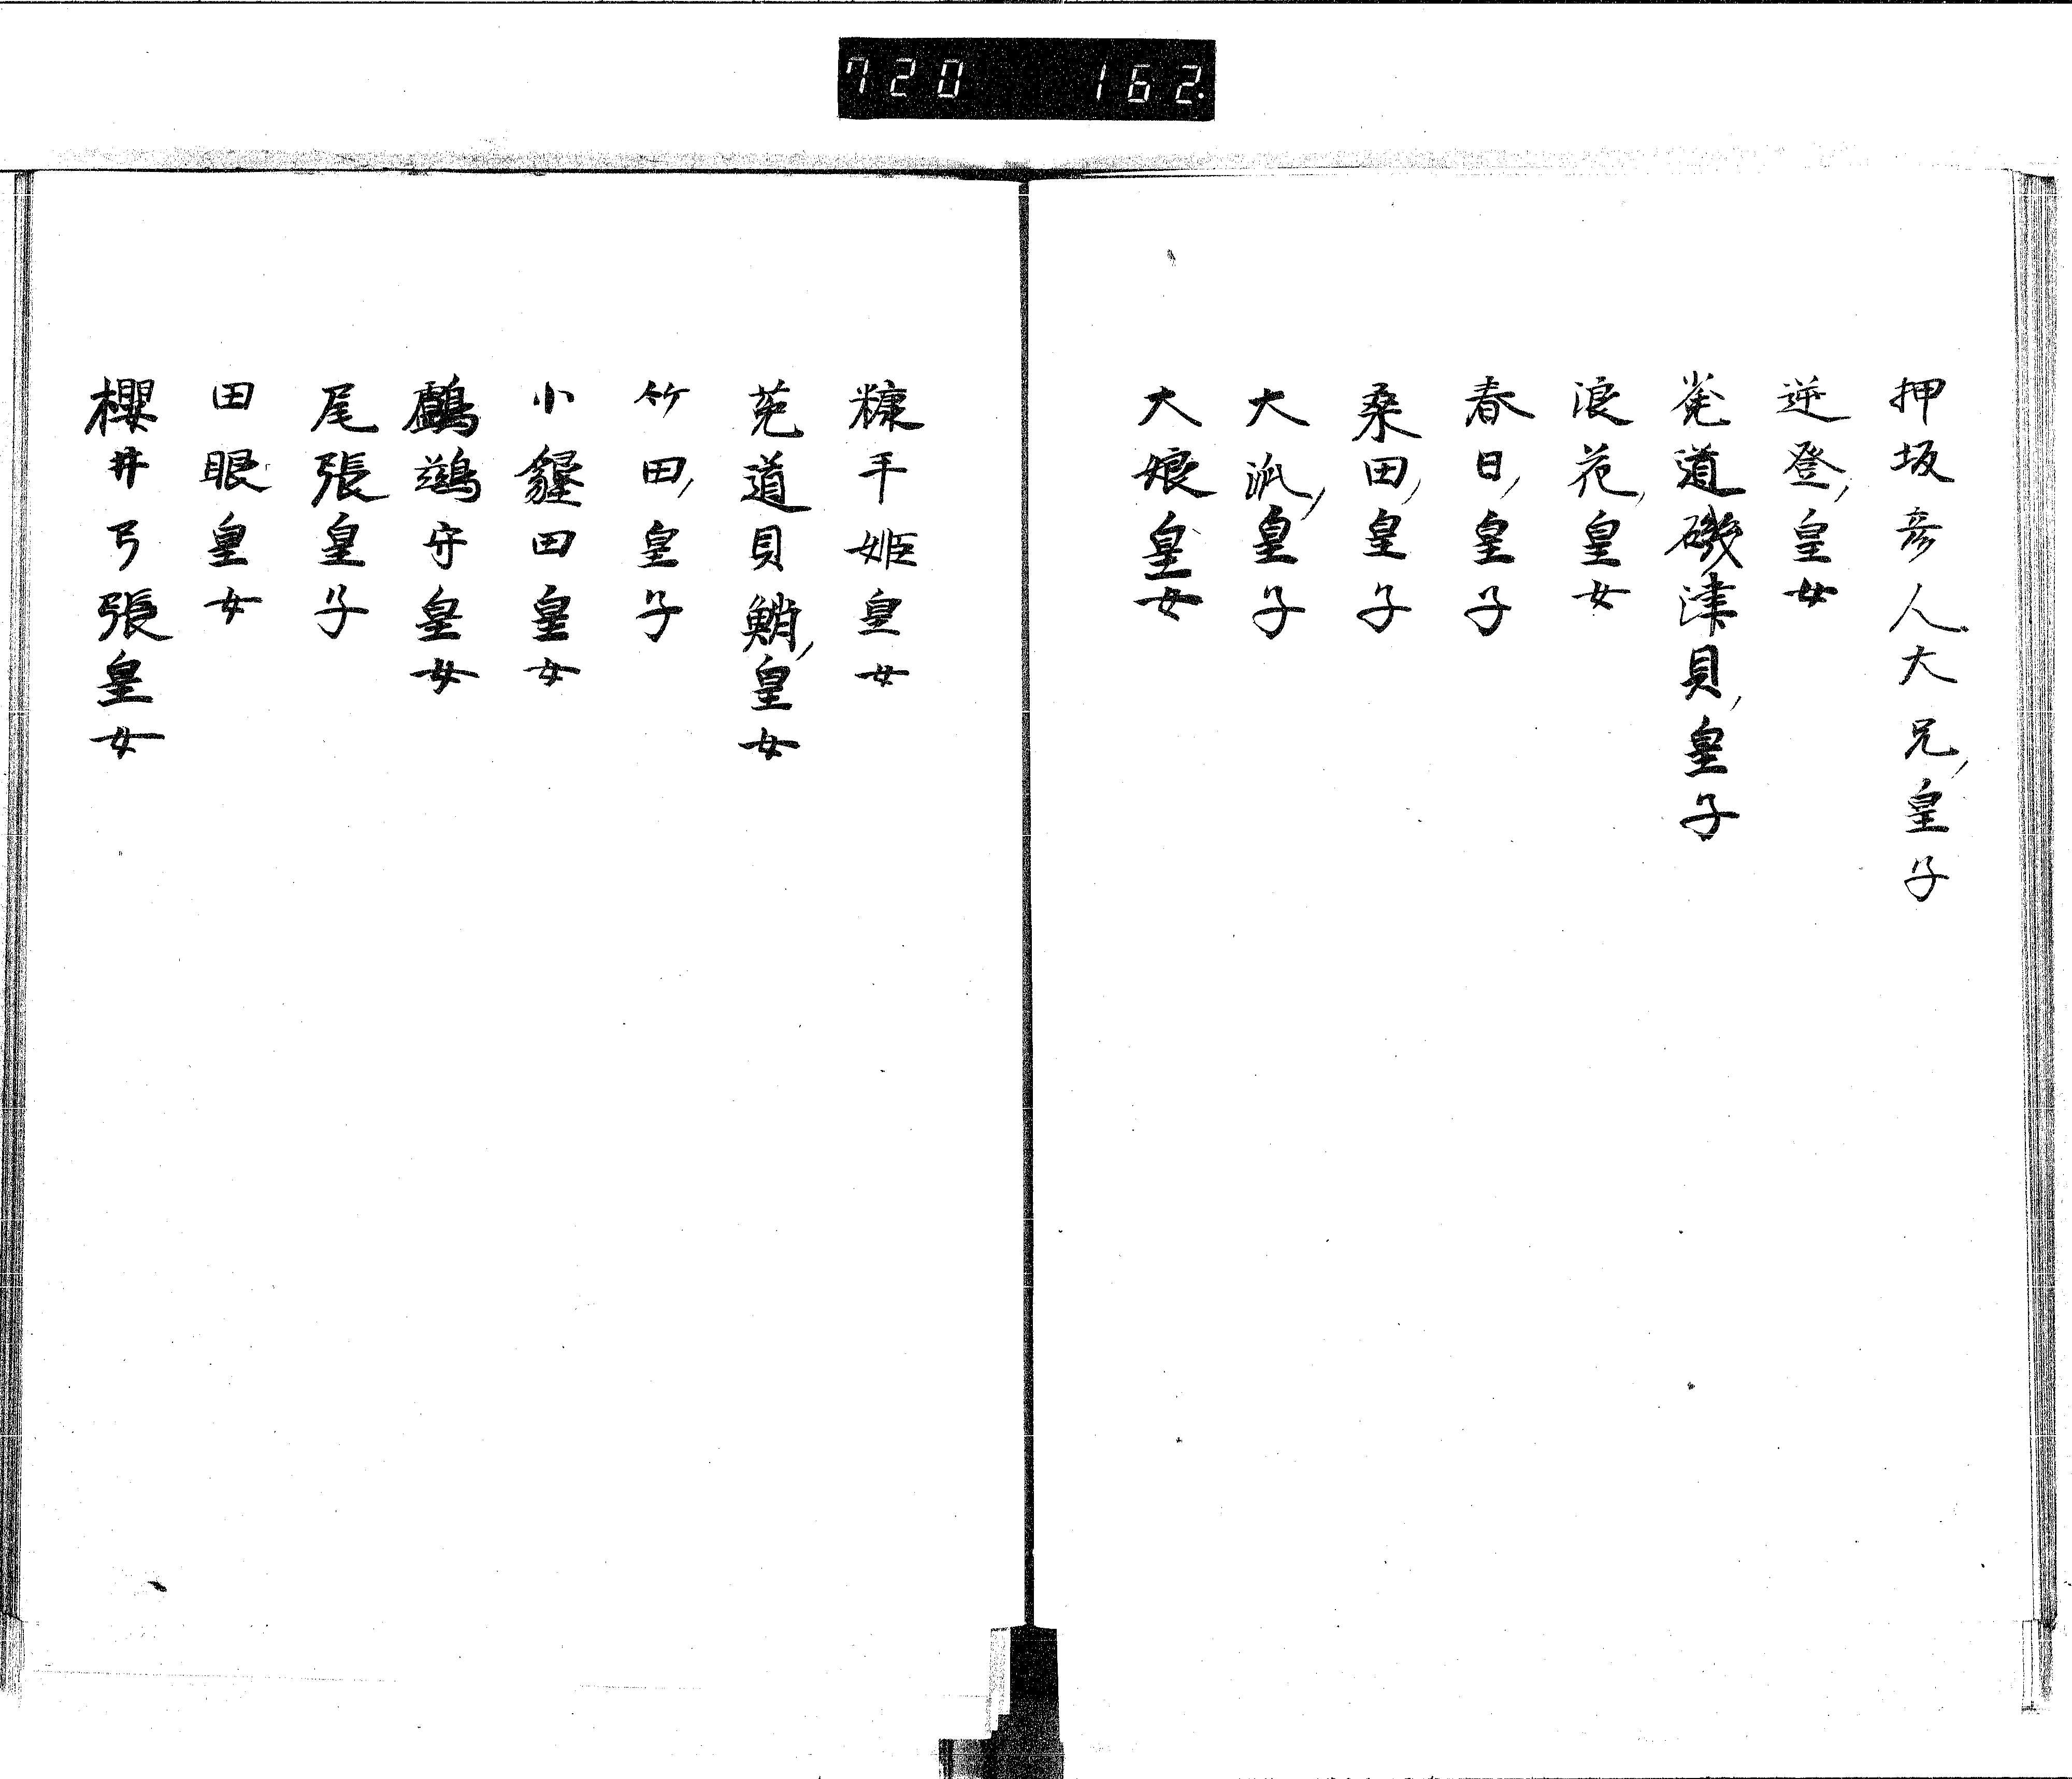 720 162
押坂彦人大兄皇子
逆登皇女
菟道磯津貝皇子
浪花皇女
春日皇子
桑田皇子
大派皇子
大娘皇女
糠手姫皇女
菟道貝鮹皇女
竹田皇子
小墾田皇女
鸕鷀守皇女
尾張皇子
田眼皇女
櫻井弓張皇女